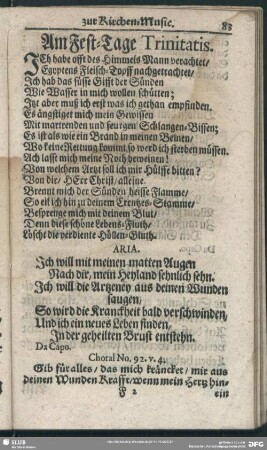 zur Kirchen-Music. 83
Am Fest-Tage Trinitatis.
ICh habe offt des Himmels Mann verachtet/
Egyptens Fleisch-Topff nachgetrachtet/
Ich hab das süsse Gifft der Sünden
Wie Wasser in mich wollen schütten;
Itzt aber muß ich erst was ich gethan empfinden.
Es ängstiget mich mein Gewissen
Mit marternden und feurigen Schlangen-Bissen;
Es ist als wie ein Brand in meinen Beinen/
Wo keine Rettung kommt, so werd ich sterben müssen.
Ach lasst mich meine Noth beweinen!
Von welchem Artzt soll ich mir Hülffe bitten?
Von dir/ HErr Christ/ alleine.
Brennt mich der Sünden heisse Flamme/
So eil ich hin zu deinem Creutzes-Stamme/
Besprenge mich mit deinem Blut/
Denn diese schöne Lebens-Fluth/
Löscht die verdiente Höllen-Gluth.
ARIA.
Ich will mit meinen matten Augen
Nach dir, mein Heyland sehnlich sehn.
Ich will die Artzeney aus deinen Wunden
saugen,
So wird die Kranckheit bald verschwinden,
Und ich ein neues Leben finden,
In der geheilten Brust entstehn.
Da Capo.
Choral No. 92. v. 4.
Gib für alles/ das mich kräncket/ mir aus
deinen Wunden Krafft/ wenn mein Hertz hin-
F 2 ein
SLUB